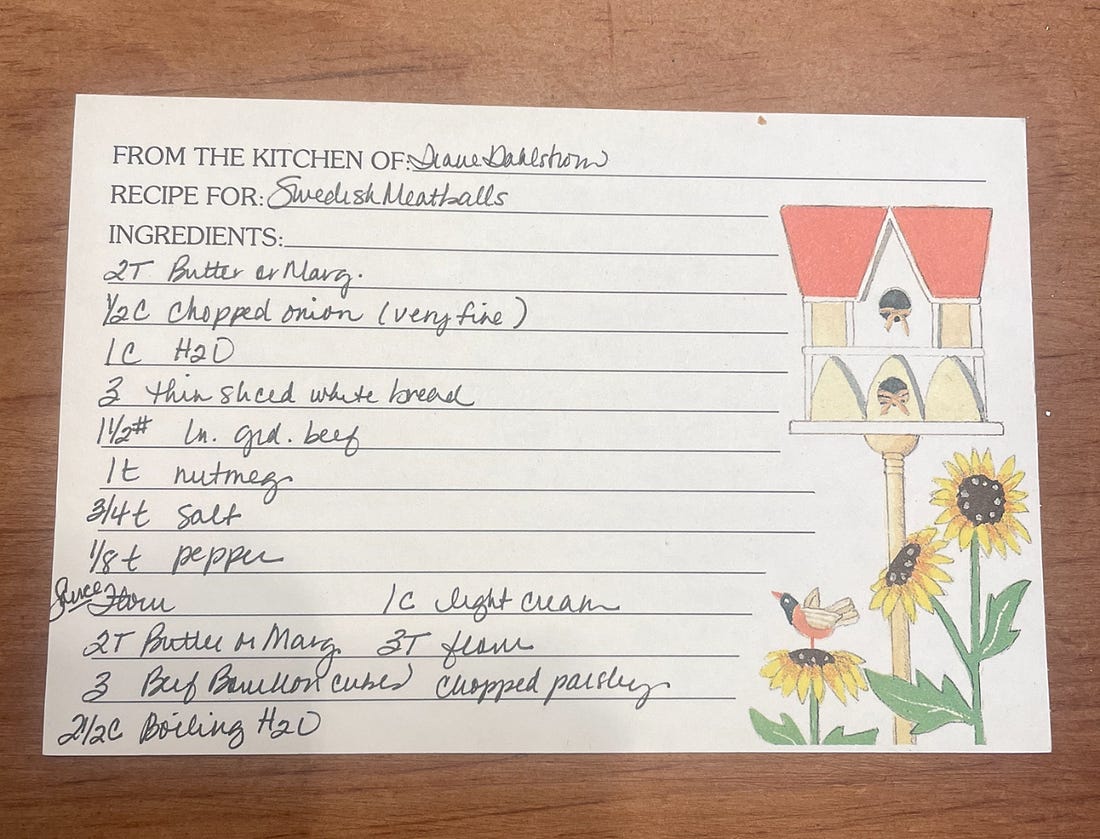 FROM THE KITCHEN OF: Diane Dahlstrom
RECIPE FOR: Swedish Meatballs
INGREDIENTS:
2T Butter or Marg.
1/2C chopped onion (very fine)
1C H2O
3 thin sliced white bread
1 1/2# ln. grd. beef
1t nutmeg
3/4t salt
1/8t pepper
Sauce 1C light cream
2T Butter or Marg. 3T flour
3 Beef Bouillon cubes chopped parsley
2 1/2C Boiling H2O